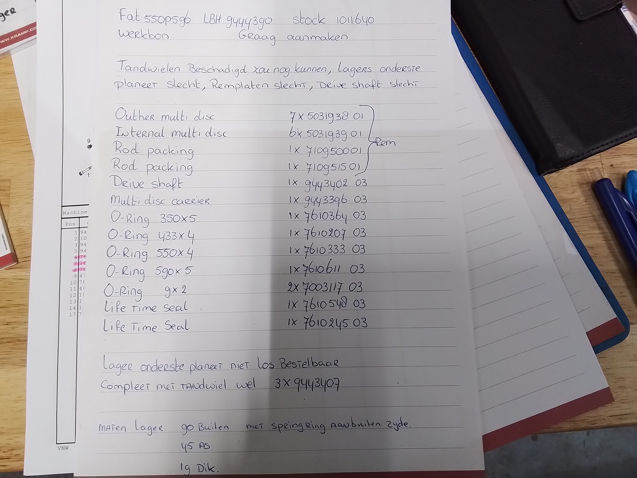 Fat 550P596 LBH 9444390 stock 1011640
Werkbon Graag aanmaken
Tandwielen Beschadigd zou nog kunnen, Lagers onderste
planeet slecht, Remplaten slecht, Drive shaft slecht
Outher multi disc 7 x 5031938 01
Internal multi disc 6 x 5031939 01
Rod packing 1 x 7109500 01
Rod packing 1 x 7109515 01
Rem
Drive shaft 1x 9443402 03
Multi disc carrier 1x 9443396 03
O-Ring 350x5 1x 7610364 03
O-Ring 433x4 1x 7610207 03
O-Ring 550x4 1x 7610333 03
O-Ring 590x5 1x 7610611 03
O-Ring 9x2 2x 7003117 03
Life Time Seal 1x 7610548 03
Life Time Seal 1x 7610245 03
Lager onderste planeet niet los Bestelbaar
Compleet met Tandwiel wel 3 x 9443407
Maten Lager 90 Buiten met springRing Aan buiten zyde.
45 AS
19 Dik.